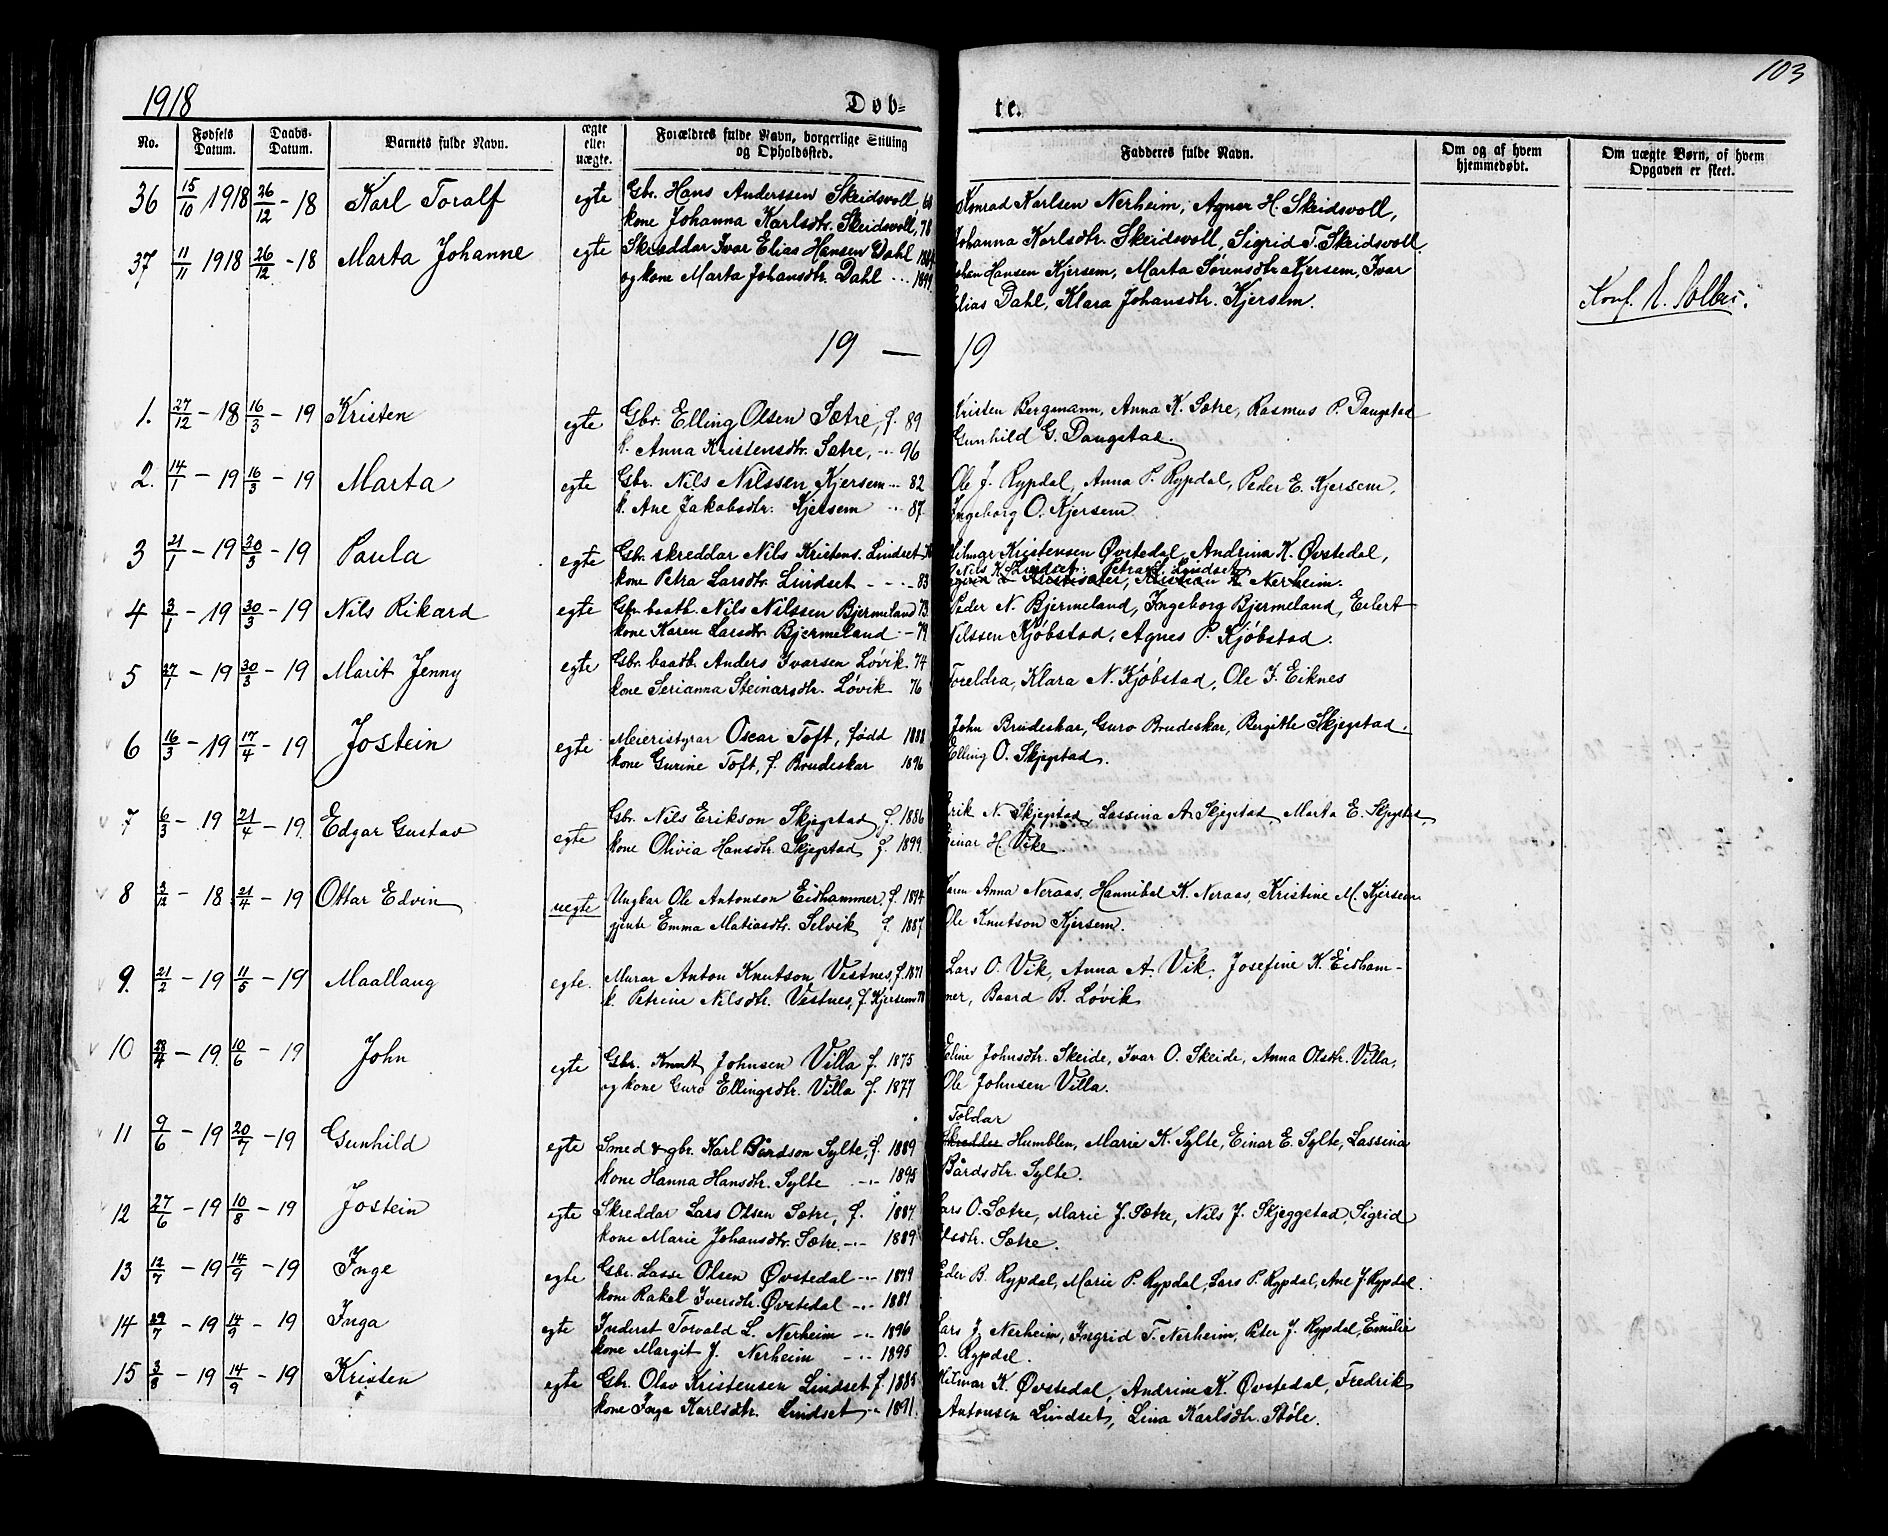 1918
Døb=
te.
103
No.
Fødsels Datum.
Daabs- Datum.
Barnets fulde Navn.
ægte eller uægte.
Forældres fulde Navn, borgerlige Stilling og Opholdssted.
Fadderes fulde Navn.
Om og af hvem hjemmedøbt.
Om uægte Børn, af hvem Opgaven er skeet.
36 15/10 1918 26/12 - 18 Karl Toralf egte Gbr. Hans Anderssen Skeidsvoll 68 Konrad Karlsen Nerheim, Agnes H. Skeidsvoll,
kone Johanna Karlsdtr. Skeidsvoll, 78 Johanna Karlsdtr. Skeidsvoll, Sigrid T. Skeidsvoll
37 11/11 1918 26/12 - 18 Marta Johanne egte Skreddar Ivar Elias Hansen Dahl
og kone Marta Johansdtr. Dahl Hansen Kjersem, Marta Sørensdtr Kjersem, Ivar
Elias Dahl, Klara Johansdtr. Kjersem.
Konf.
19 — 19
1. 27/12 - 18 16/3 - 19 Kristen egte Gbr. Elling Olsen Sætre, f. 89 Kristen Bergmann, Anna K. Sætre, Rasmus P. Daugstad
k. Anna Kristensdtr. Sætre, 96 Gunhild G. Daugstad.
2. 14/1 - 19 16/3 - 19 Marta egte Gbr. Nils Nilssen Kjersem 82 Ole J. Rypdal, Anna P. Rypdal, Peder E. Kjersem,
k. Ane Jakobsdtr. Kjersem 87. Ingeborg O. Kjersem
3 21/1 - 19 30/3 - 19 Paula egte Gbr. skreddar Nils Kristens. Lindset Kristensen Øvstedal, Andrina K. Øvstedal,
Nils K. Lindset, Petra L. Lindset
kone Petra Larsdtr. Lindset - - - 83 Kristian K. Nerheim.
4 3/1 - 19 30/3 - 19 Nils Rikard egte Gbr. baatb. Nils Nilssen Bjermeland 73. Peder N. Bjermeland, Ingeborg Bjermeland, Eilert
kone Karen Larsdtr. Bjermeland - 79 Nilssen Kjøbstad, Agnes P. Kjøbstad.
5 27/1 - 19 30/3 - 19 Marit Jenny egte Gbr. baatb. Anders Ivarsen Løvik. 74 Foreldra, Klara N. Kjøbstad, Ole J. Eiknes
kone Serianna Steinarsdtr. Løvik 76
6 16/3 - 19 17/4 - 19 Jostein egte Meieristyrar Oscar Toft, fødd 1888 John Brudeskar, Guro Brudeskar, Bergitte Skjegstad.
kone Gurine Toft, f. Brudeskar 1896 Elling O. Skjegstad.
7 6/3 - 19 21/4 - 19. Edgar Gustav egte Gbr. Nils Erikson Skjegstad f. 1886 Erik N. Skjegstad, Lassina A. Skjegstad, Marta E. Skjegstad,
kone Olivia Hansdtr. Skjegstad f. 1899. Einar H. Vike.
8 3/12 - 18 21/4 - 19 Ottar Edvin uegte Ungkar Ole Antonson Eidhammer, f. 1894 Karen Anna Neraas, Hannibal K. Neraas, Kristine M. Kjersem
gjente Emma Matiasdtr. Selvik f. 1887 Ole Knutson Kjersem.
9. 21/2 - 19 11/5 - 19 Maallaug egte. Murar Anton Knutson Vestnes, f. 1871 Lars O. Vik, Anna A. Vik, Josefine K. Eidham-
k. Petrine Nilsdtr. Vestnes, f. Kjersem 78 mer, Baard B. Løvik
10 28/4 - 19. 10/6 - 19 John egte Gbr. Knutt Johnsen Villa f. 1875 Eline Johnsdtr. Skeide, Ivar O. Skeide, Anna Olsdtr. Villa,
og kone Guro Ellingsdtr. Villa f. 1877 Ole Johnsen Villa.
Toldar
11 9/6 - 19 20/7 - 19 Gunhild egte Smed & gbr. Karl Bårdson Sylte, f. 1889 Skredder Humblen, Marie K. Sylte, Einar E. Sylte, Lassina
kone Hanna Hansdtr. Sylte 1895 Bårdsdtr. Sylte.
12 27/6 - 19 10/8 - 19 Jostein egte Skreddar Lars Olsen Sætre, f. 1887. Lars O. Sætre, Marie J. Sætre, Nils J. Skjeggstad, Sigrid
kone Marie Johansdtr. Sætre 1889 Olsdtr. Sætre.
13 12/7 - 19 14/9 - 19 Inge egte Gbr. Lasse Olsen Øvstedal 1879 Peder B. Rypdal, Marie P. Rypdal, Lars P. Rypdal, Ane J. Rypdal.
kone Rakel Iversdtr. Øvstedal 1881
14 29/7 - 19 14/9 - 19 Inga egte Inderst Torvald L. Nerheim 1896 Lars J. Nerheim, Ingrid T. Nerheim, Peter J. Rypdal, Emilie
kone Margit J. Nerheim 1895 O. Rypdal.
15 3/8 - 19 14/9 - 19 Kristen egte Gbr. Olav Kristensen Lindset f. 1885 Hilmar K. Øvstedal, Andrine K. Øvstedal, Fredrik
kone Inga Karlsdtr. Lindset 1891. Antonsen Lindset, Lina Karlsdtr. Støle.